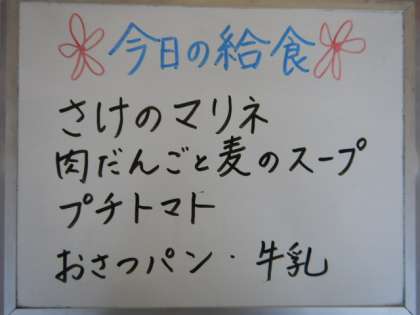 今日の給食
さけのマリネ
肉だんごと麦のスープ
プチトマト
おさつパン・牛乳